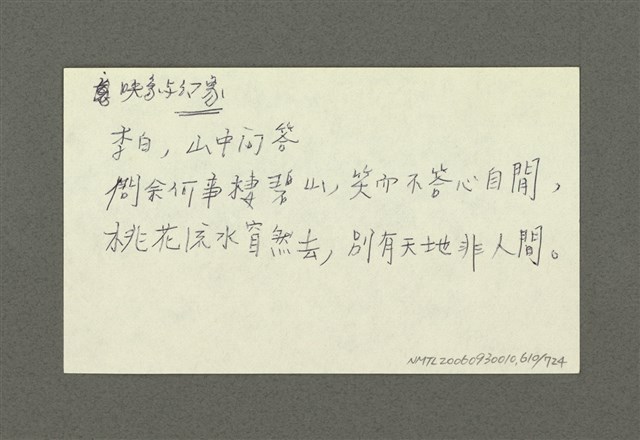 映象与幻象
李白，山中问答
問余何事棲碧山，笑而不答心自閒，
桃花流水窅然去，別有天地非人間。
NMTL20060930010.610/724